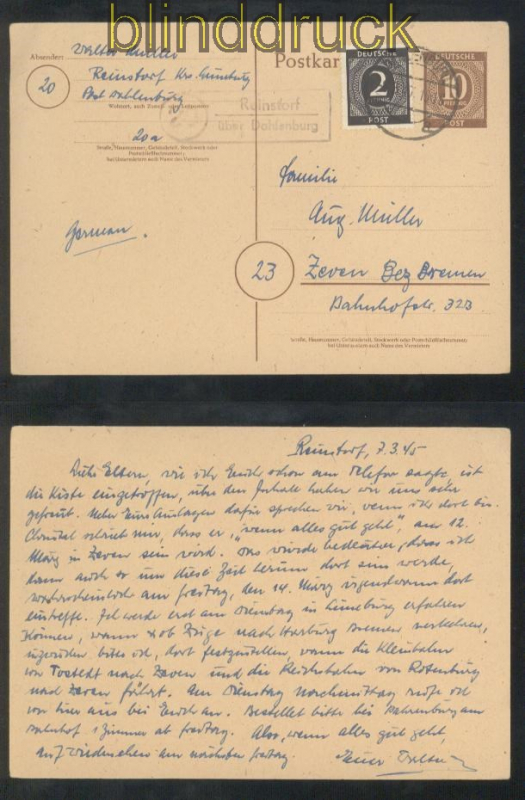 blinddruck
Absender: Walter Müller
Reinstorf Krs. Lüneburg
Post Dahlenburg
Wohnort, auch Zustell- oder Leitpostamt
20
20a
Straße, Hausnummer, Gebäudeteil, Stockwerk oder Postschließfachnummer,
bei Untermietern auch Name des Vermieters
German.
Postkar
DEUTSCHE
2
PFENNIG
POST
DEUTSCHE
10
PFENNIG
POST
Reinstorf
über Dahlenburg
Familie
Aug. Müller
23
Zeven Bez Bremen
Bahnhofstr. 32B
Straße, Hausnummer, Gebäudeteil, Stockwerk oder Postschließfachnummer,
bei Untermietern auch Name des Vermieters
Reinstorf, 7.3.45
Liebe Eltern, wie ich Euch schon am Telefon sagte, ist
die Kiste eingetroffen, über den Inhalt haben wir uns sehr
gefreut. Ueber Eure Auslagen dafür sprechen wir, wenn ich dort bin.
schreibt mir, dass er, "wenn alles gut geht", am 12.
März in Zeven sein wird. Das würde bedeuten, dass ich
dann auch so um diese Zeit herum dort sein werde,
wahrscheinlich am Freitag, den 14. März irgendwann dort
eintreffe. Ich werde erst am Dienstag in Lüneburg erfahren
können, wann u. ob Züge nach Harburg Bremen verkehren,
inzwischen bitte ich, dort festzustellen, wann die Kleinbahn
von Tostedt nach Zeven und die Reichsbahn von Rotenburg
nach Zeven fährt. Am Dienstag nachmittag rufe ich
von hier aus bei Euch an. Bestellet bitte bei am
Bahnhof 1 Zimmer ab Freitag. Also, wenn alles gut geht,
auf Wiedersehen am nächsten Freitag. Euer